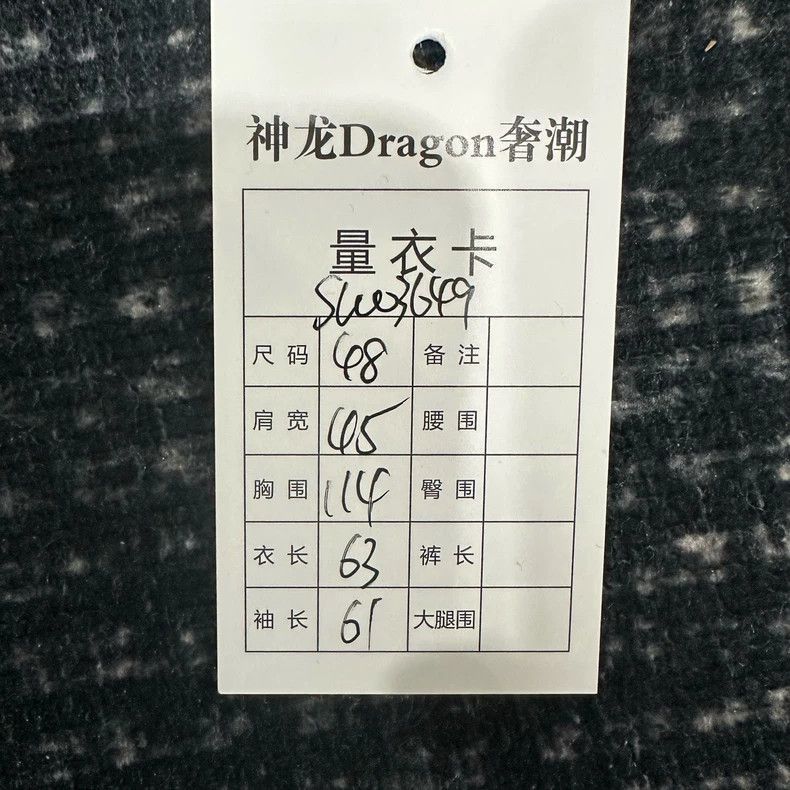 神龙Dragon奢潮
量衣卡
SW03649
尺码 48 备注
肩宽 45 腰围
胸围 114 臀围
衣长 63 裤长
袖长 61 大腿围